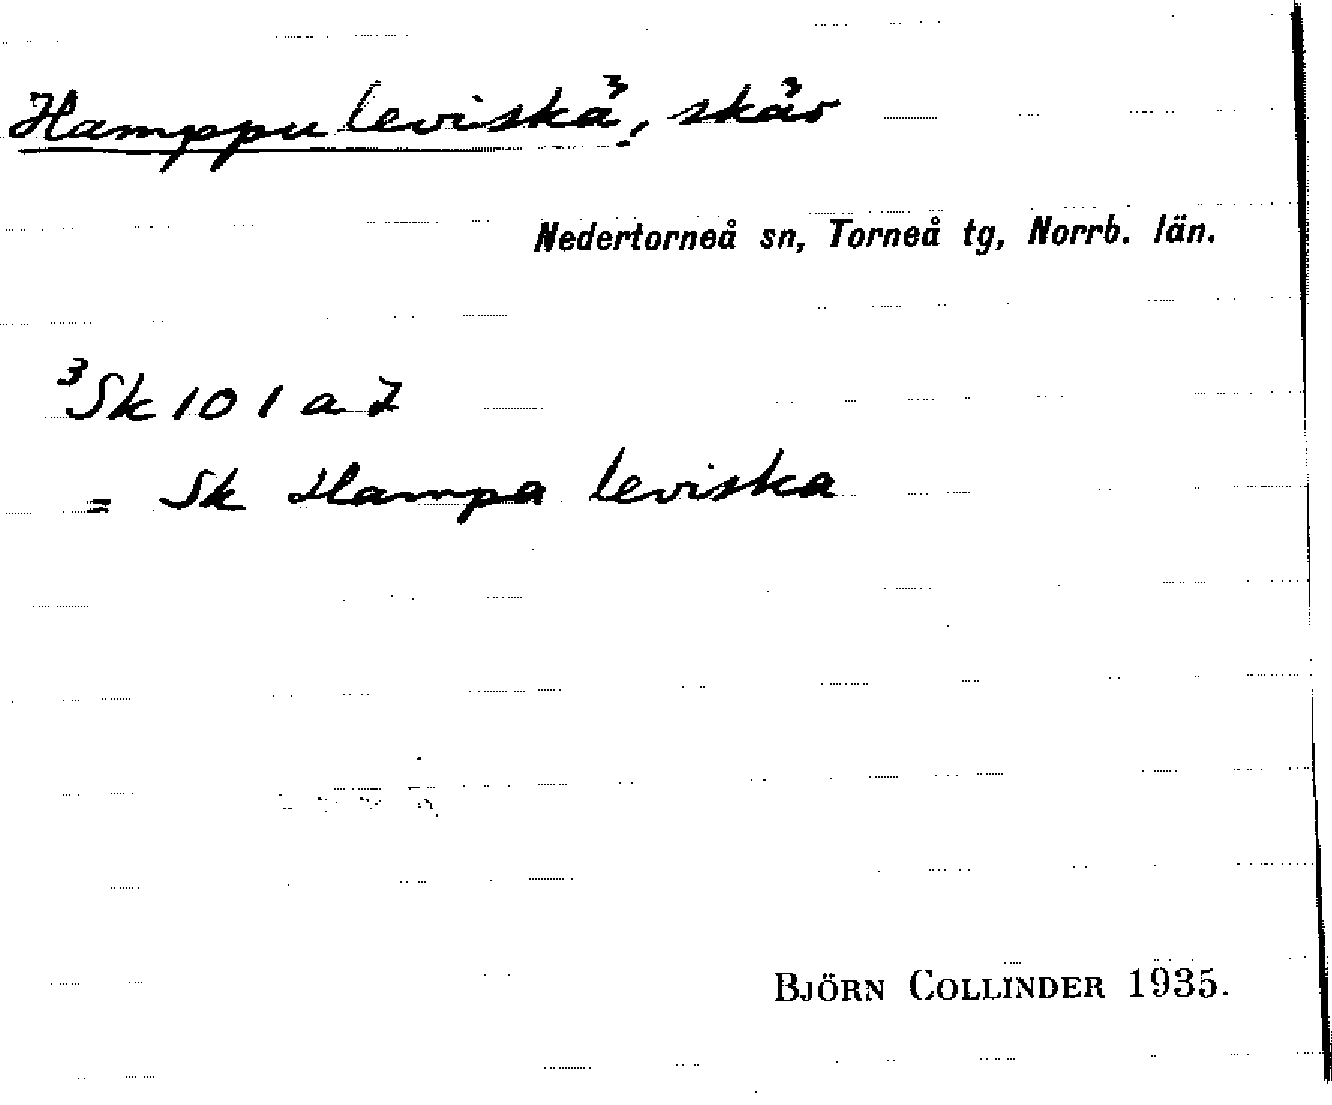 Hamppuleviskä, skär
Nedertorneå sn, Torneå tg, Norrb. län.
³Sk 101 a 2
= Sk Hampa leviska
BJÖRN COLLINDER 1935.